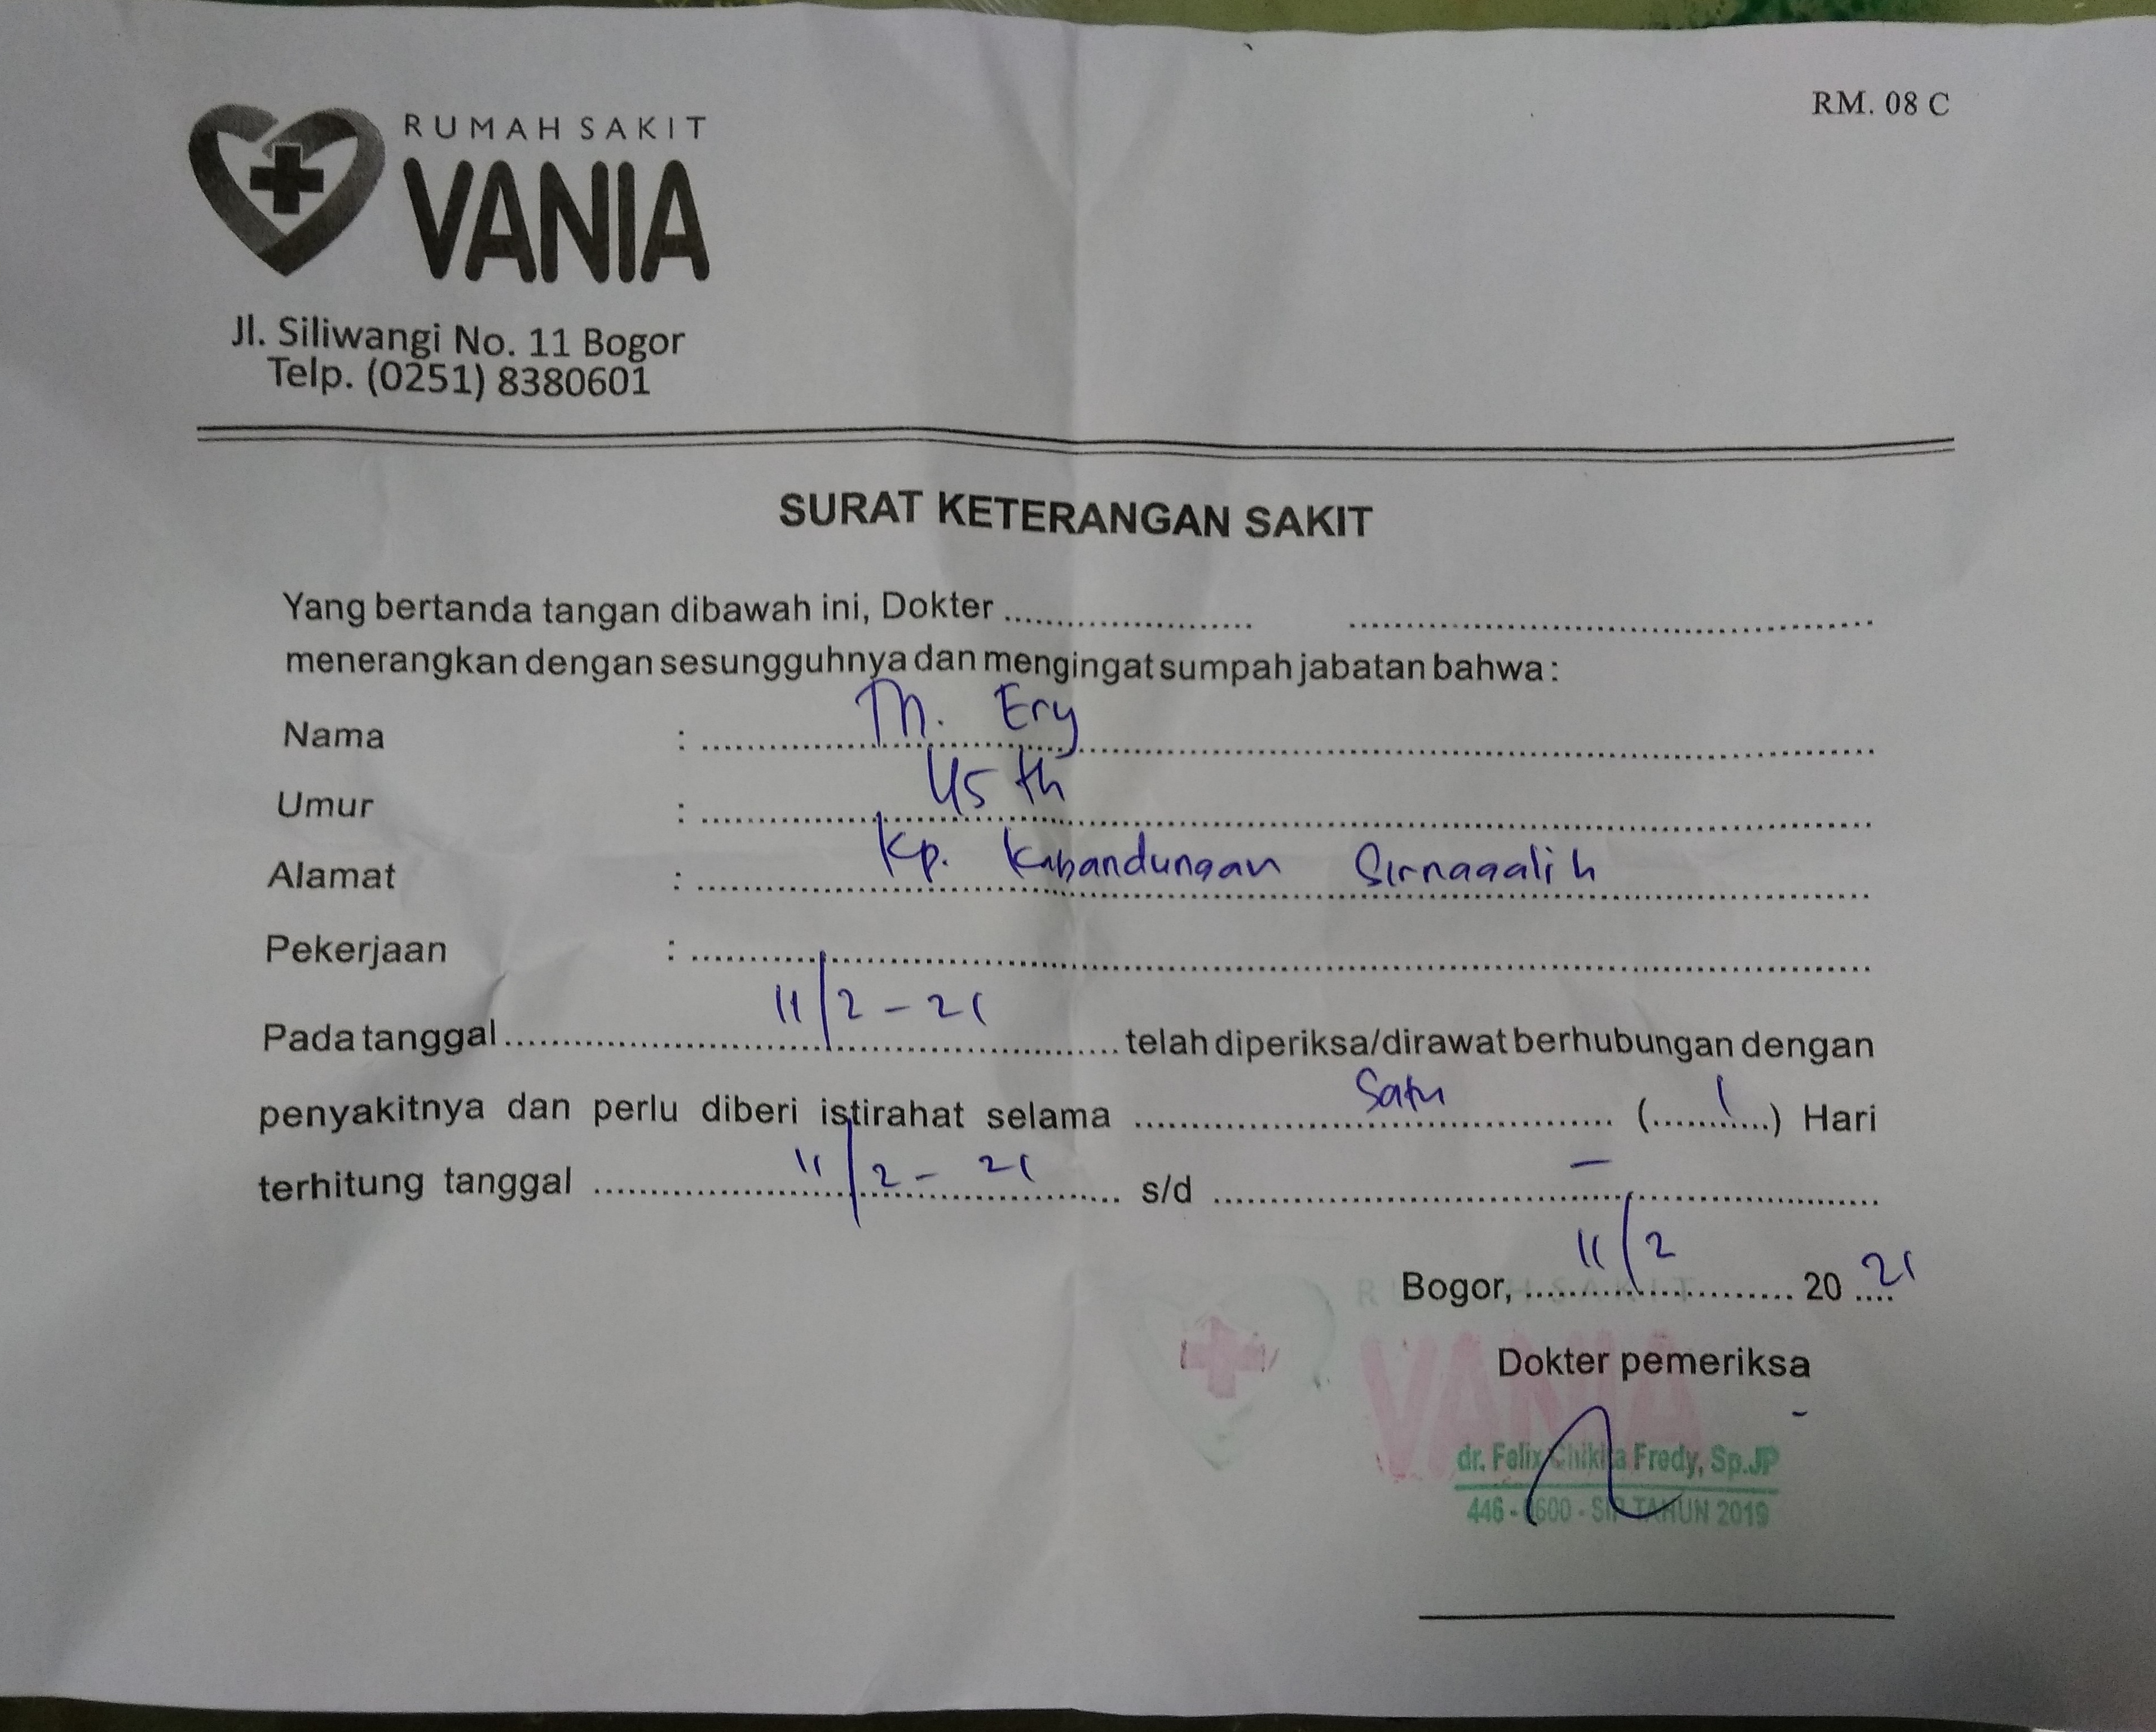 RM. 08 C
RUMAH SAKIT
VANIA
Jl. Siliwangi No. 11 Bogor
Telp. (0251) 8380601
SURAT KETERANGAN SAKIT
Yang bertanda tangan dibawah ini, Dokter ........................ ................................................
menerangkan dengan sesungguhnya dan mengingat sumpah jabatan bahwa :
Nama : Tn. Ery
Umur : 45 th
Alamat : Kp. Kabandungan Sirnagalih
Pekerjaan :
Pada tanggal 11/2 - 21 telah diperiksa/dirawat berhubungan dengan
penyakitnya dan perlu diberi istirahat selama Satu (1) Hari
terhitung tanggal 11/2 - 21 s/d -
Bogor, 11/2 20 21
RUMAH SAKIT
VANIA
Dokter pemeriksa
dr. Felix Chikita Fredy, Sp.JP
446 - 0600 - SIP TAHUN 2019